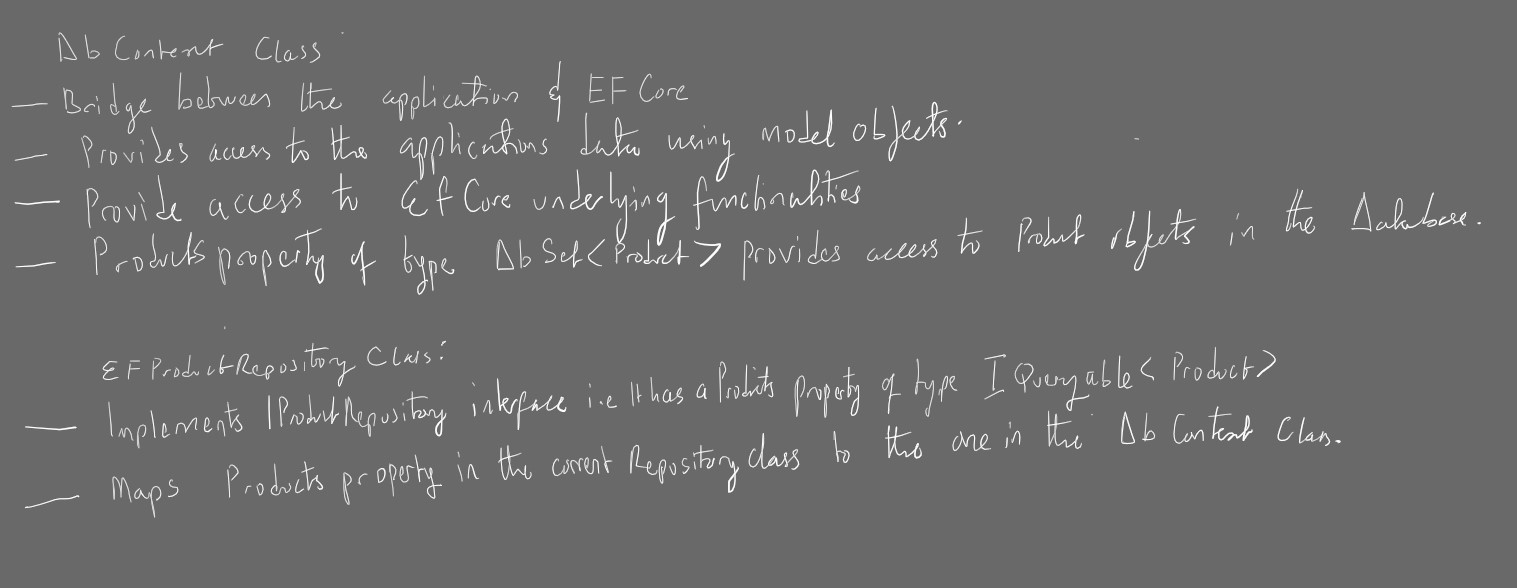 Db Context Class
— Bridge between the application & EF Core
— Provides access to the applications data using model objects.
— Provide access to Ef Core underlying functionalities
— Products property of type DbSet<Product> provides access to Product objects in the Database.
EFProductRepository Class:
— Implements IProductRepository interface i.e It has a Products property of type IQueryable<Product>
— Maps Products property in the current Repository class to the one in the Db Context Class.